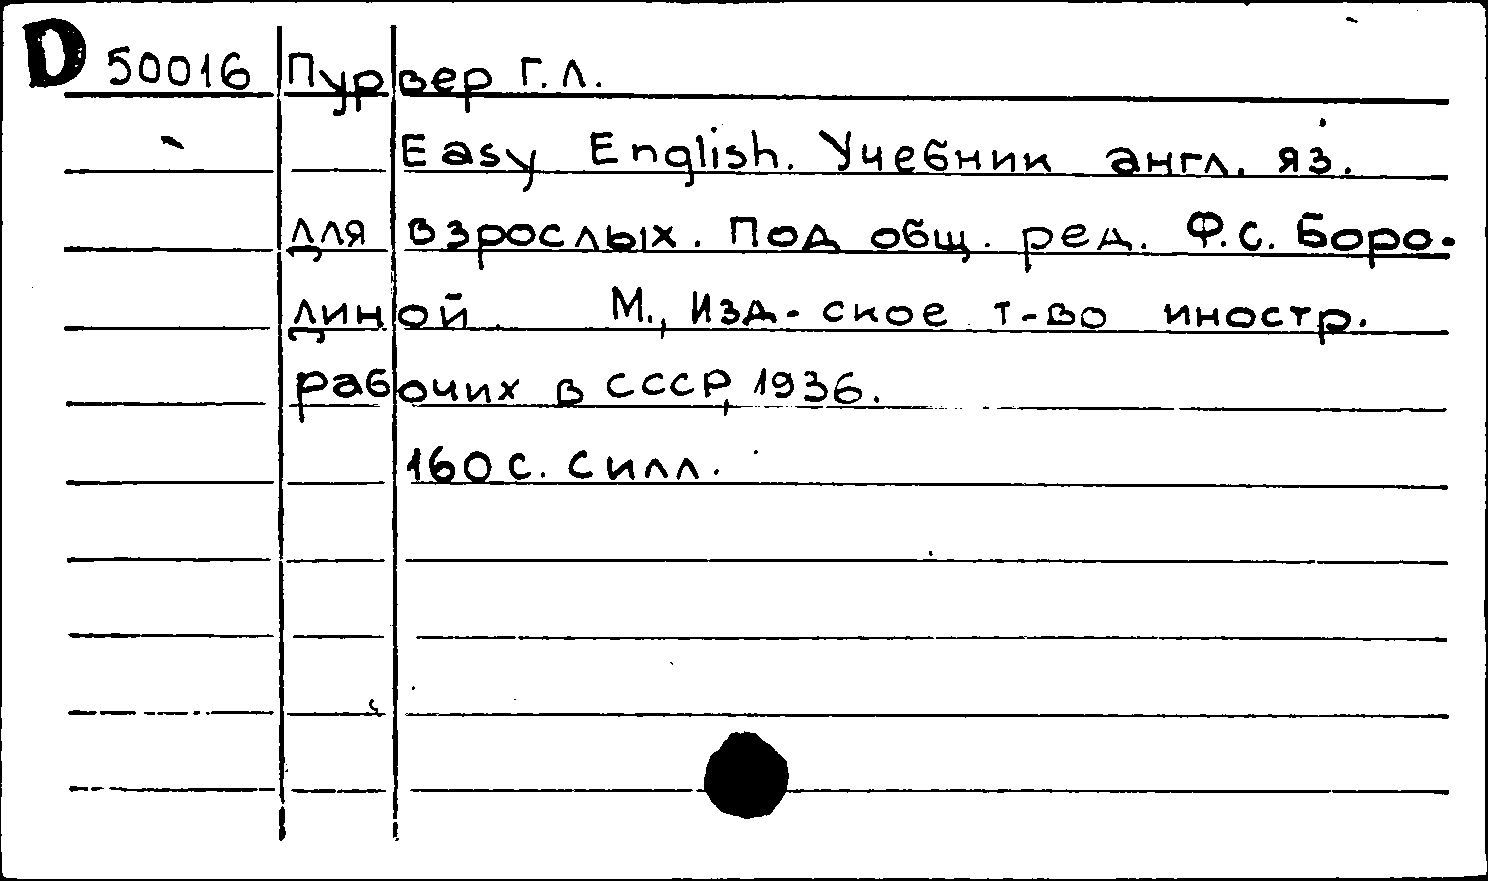 D 50016 Пурвер Г.Л.
Easy English. Учебник англ. яз.
для взрослых. Под общ. ред. Ф.С. Боро-
диной М., Изд-ское т-во иностр.
рабочих в СССР, 1936.
160 с. с илл.